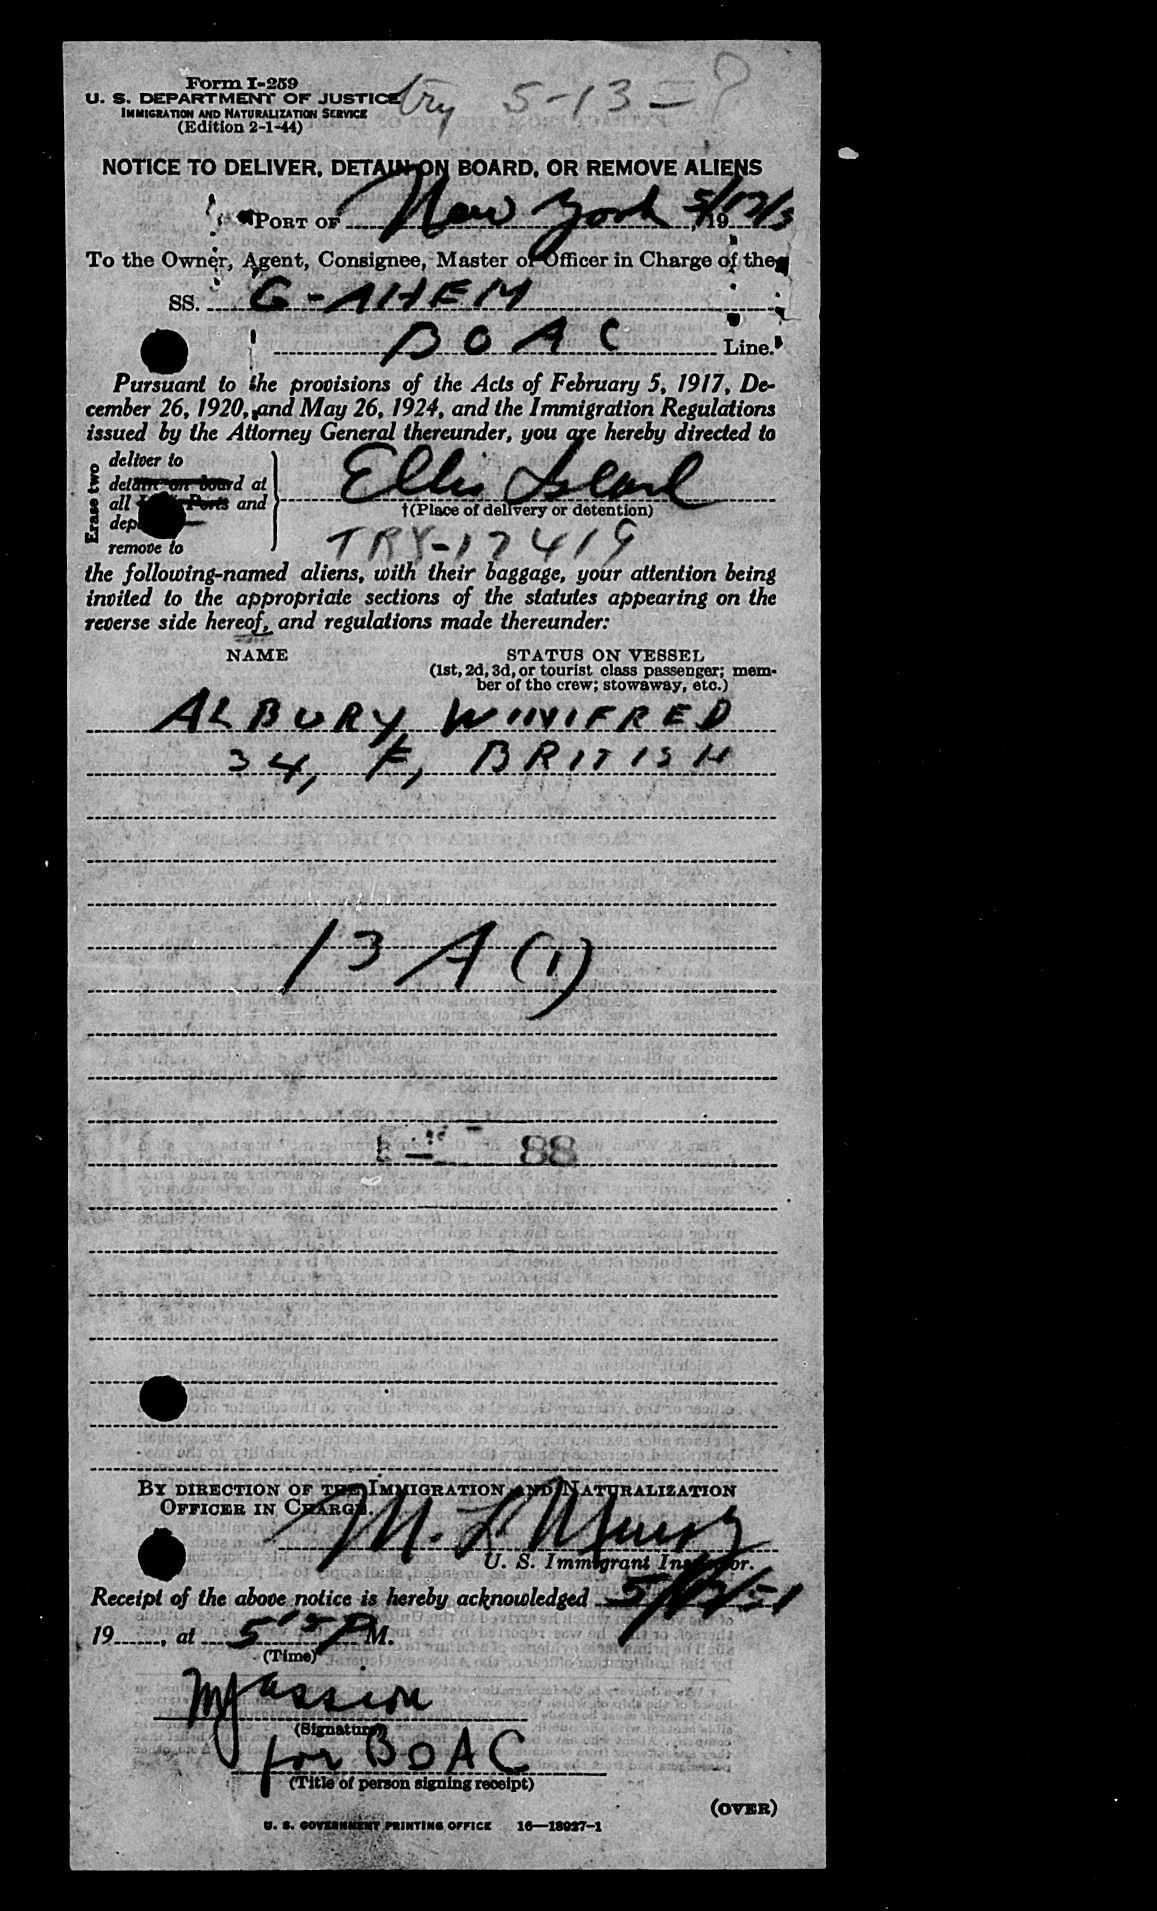 Form I-259
try 5-13=?
U. S. DEPARTMENT OF JUSTICE
IMMIGRATION AND NATURALIZATION SERVICE
(Edition 2-1-44)
NOTICE TO DELIVER, DETAIN ON BOARD, OR REMOVE ALIENS
PORT OF New York 5/12/5, 19
To the Owner, Agent, Consignee, Master or Officer in Charge of the
SS. G-AHEM
BOAC Line.
Pursuant to the provisions of the Acts of February 5, 1917, De-
cember 26, 1920, and May 26, 1924, and the Immigration Regulations
issued by the Attorney General thereunder, you are hereby directed to
Erase two
deliver to
detain on board at
all Ports and
remove to
Ellis Island
†(Place of delivery or detention)
TRY-17419
the following-named aliens, with their baggage, your attention being
invited to the appropriate sections of the statutes appearing on the
reverse side hereof, and regulations made thereunder:
NAME STATUS ON VESSEL
(1st, 2d, 3d, or tourist class passenger; mem-
ber of the crew; stowaway, etc.)
ALBURY, WINIFRED
34, F, BRITISH
13 A (1)
88
BY DIRECTION OF THE IMMIGRATION AND NATURALIZATION
OFFICER IN CHARGE.
U. S. Immigrant Inspector.
Receipt of the above notice is hereby acknowledged 5/12/51
19, at 515 P M.
(Time)
(Signature)
for BOAC
(Title of person signing receipt)
(OVER)
U. S. GOVERNMENT PRINTING OFFICE 16—18927-1